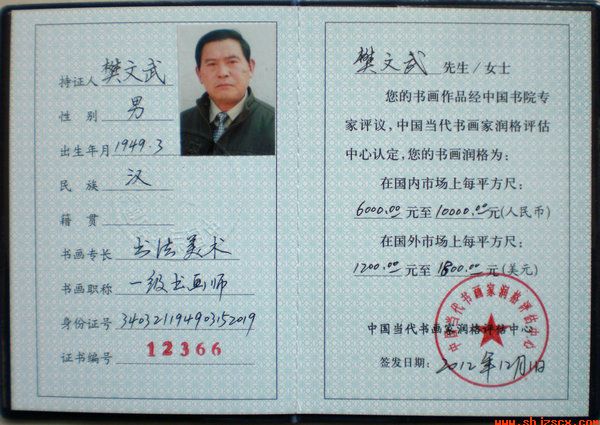 持证人 樊文武
性 别 男
出生年月 1949.3
民 族 汉
籍 贯
书画专长 书法美术
书画职称 一级书画师
身份证号 340321194903152019
证书编号 12366
樊文武 先生/女士
您的书画作品经中国书院专
家评议，中国当代书画家润格评估
中心认定，您的书画润格为：
在国内市场上每平方尺：
6000.00 元至 10000.00 元(人民币)
在国外市场上每平方尺：
1200.00 元至 1800.00 元(美元)
中国当代书画家润格评估中心
中国当代书画家润格评估中心
签发日期： 2012年12月1日
www.shjzscx.com